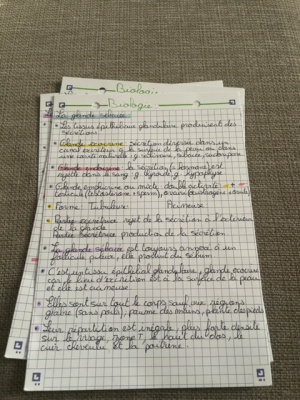 Biolo
Biologie
La glande sébacée
Les tissus épithéliaux glandulaire produisent des
sécrétions
Glande exocrine : sécrétion déversée dans un
canal excréteur à la surface de la peau ou dans
une cavité naturelle : g
Glande endocrine : la sécrétion (= hormone) est
rejeté dans le sang : g thyroïde, g hypophyse
Glande amphicrine ou mixte : double activité
testicule (testostérone + sperm), ovaire
Forme Tubuleux Acineuse
Partie excrétrice : rejet de la sécrétion à l'extérieur
de la glande
Partie sécrétrice : production de la sécrétion
La glande sébacée est toujours annexé à un
follicule pileux, elle produit du sébum
C'est un tissu épithélial glandulaire, glande exocrine
car le lieu d'excrétion est à la surface de la peau
et elle est acineuse
Elles sont sur tout le corps sauf aux régions
glabre (sans poils), paume des mains, plante des pieds
Leur répartition est inégale, plus forte densité
sur le visage, zone T, le haut du dos, le
cuir chevelu et la poitrine.